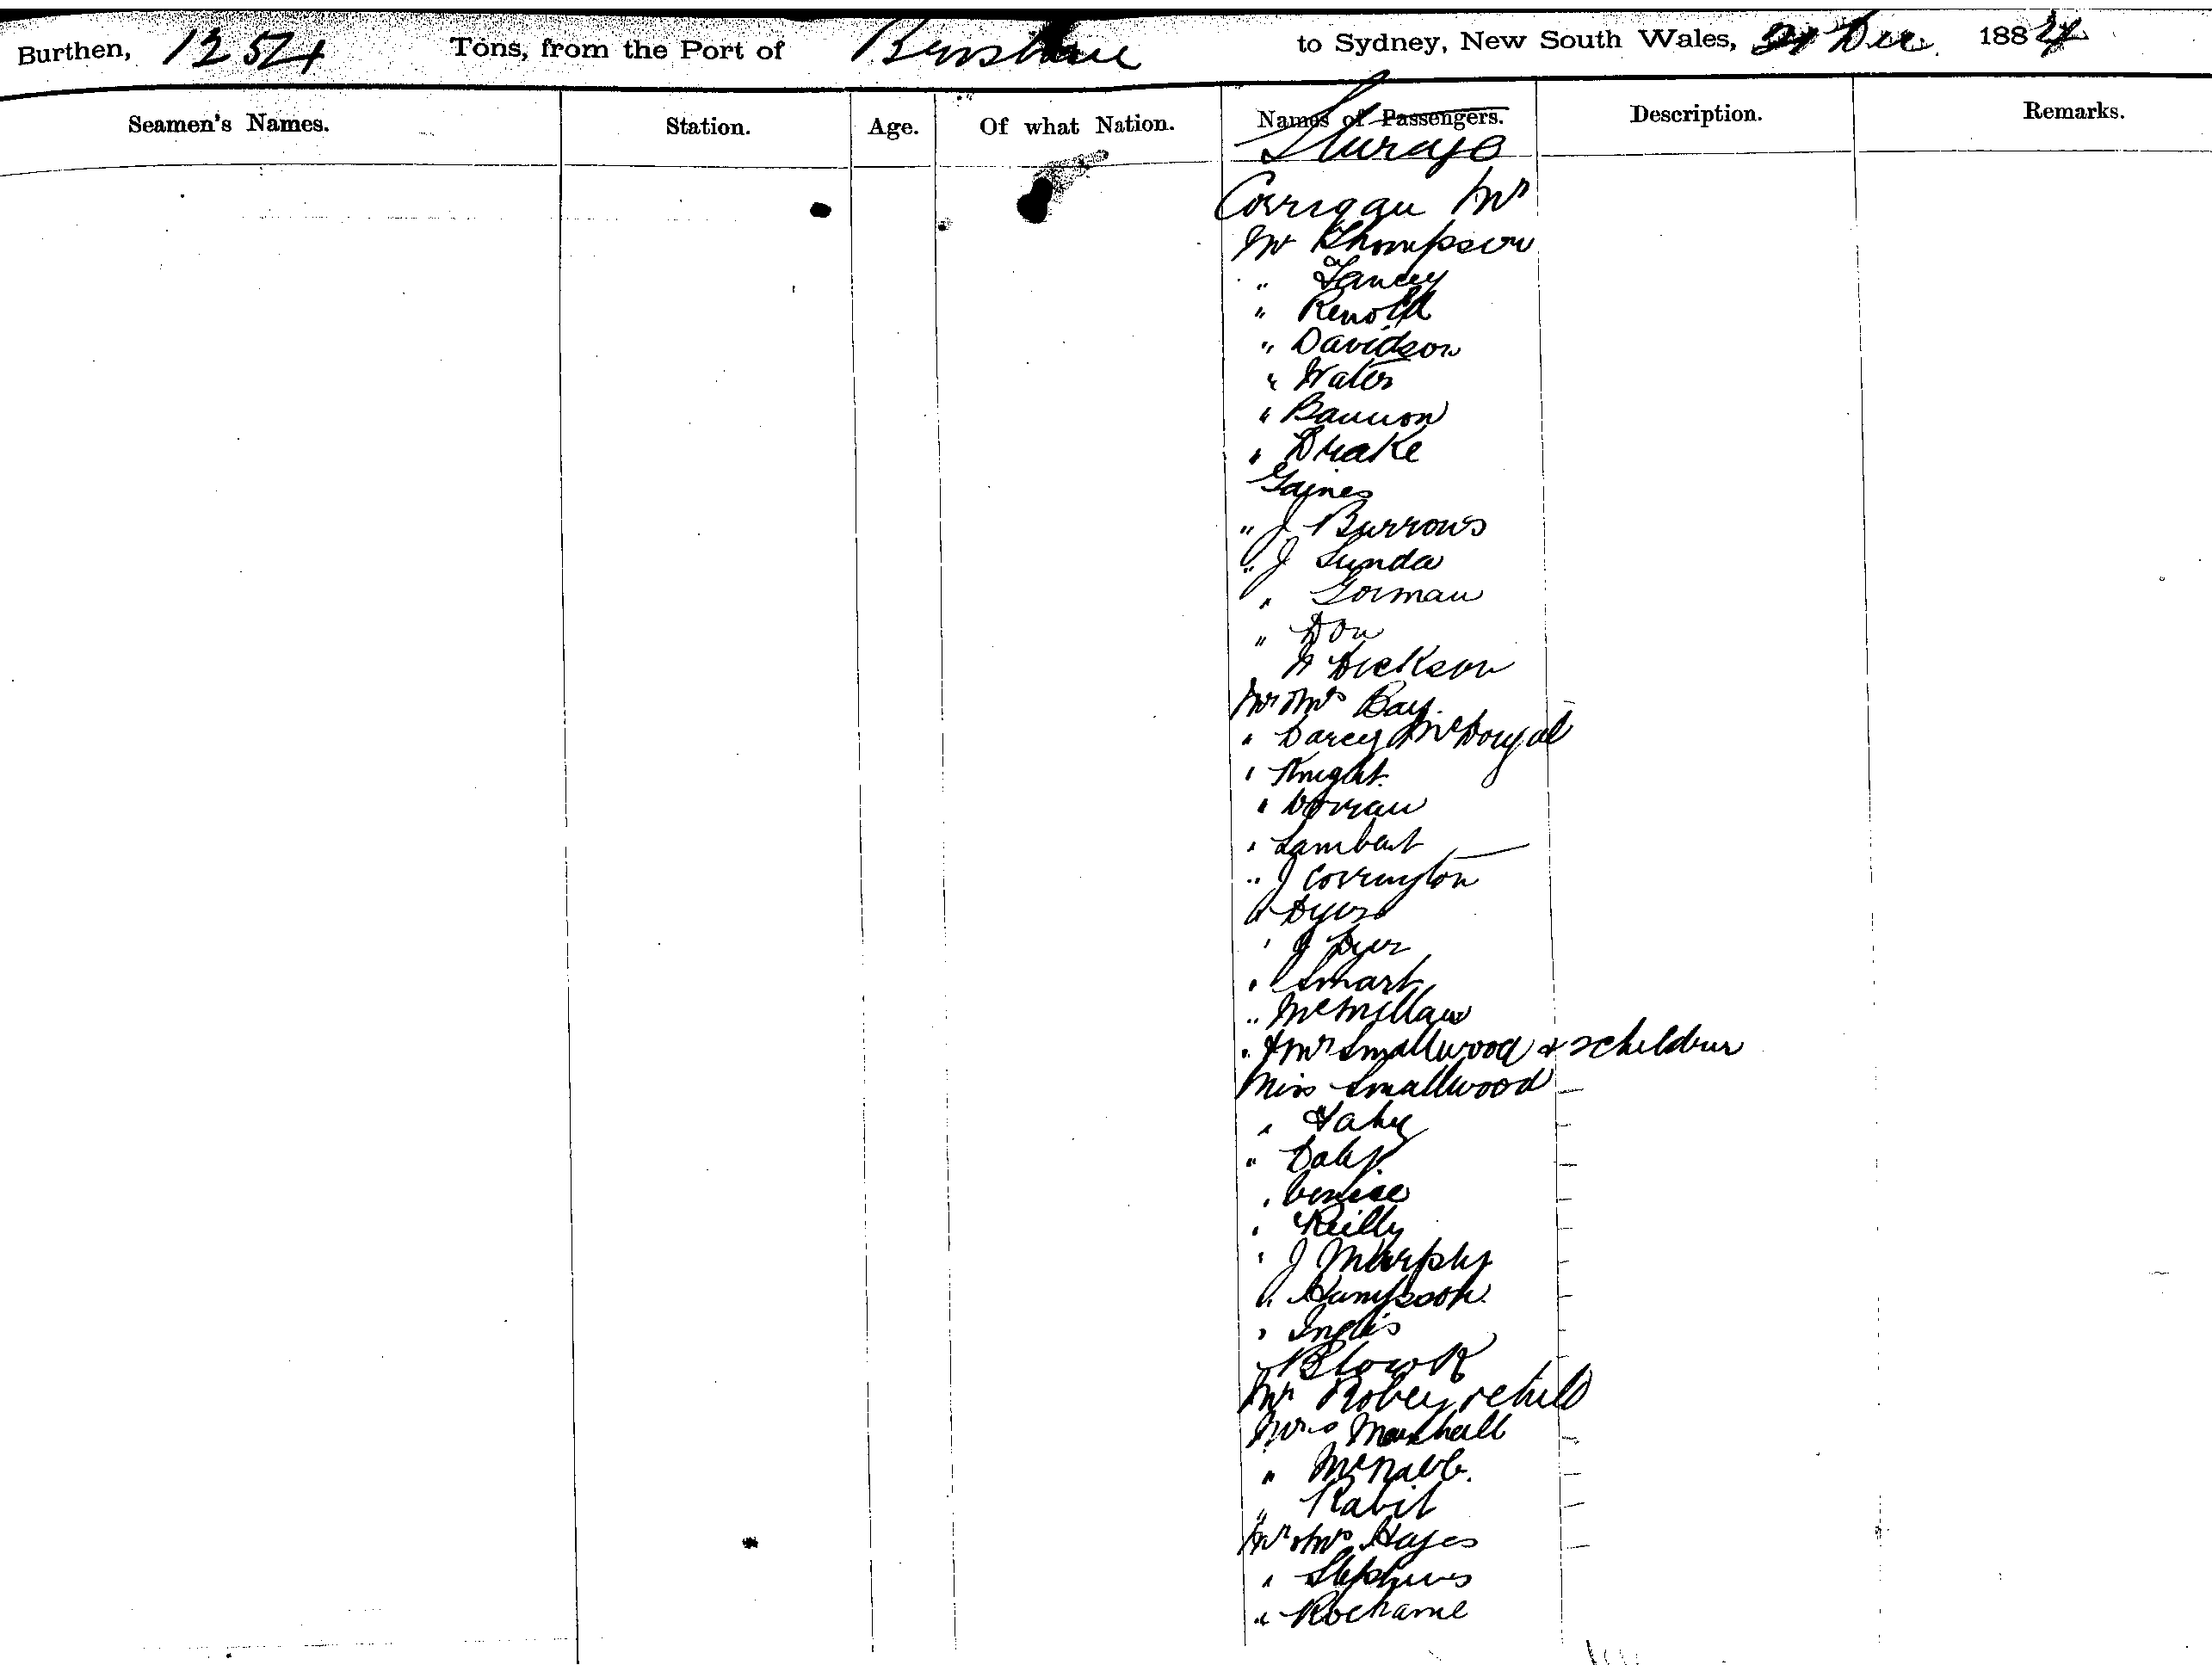 Burthen, 1254 Tons, from the Port of Brisbane to Sydney, New South Wales, 21 Dec. 1884
Seamen's Names. Station. Age. Of what Nation. Names of Passengers. Description. Remarks.
Steerage
Corrigan Mr
Mr Thompson
" Lancey
" Renold
" Davidson
" Water
" Bannon
" Drake
Gaines
" J Burrows
" J Lunda
" Gorman
" Don
" Dickson
Mr & Mrs Bay.
" Darcy McDougal
" Knight.
" Dorran
" Lambert
" J Corrington
" Dyer
" J Dyer
" Smart
" McMillan
" & Mrs Smallwood & 2 children
Miss Smallwood
" Fahy
" Daly.
"
" Reilly
" J Murphy
" Hampson.
" Inglis
Blowk
Mr Robey & child
Mrs Marshall
" McNabb.
" Rabit
Mr & Mrs Hayes
" Stephens
" Rochame